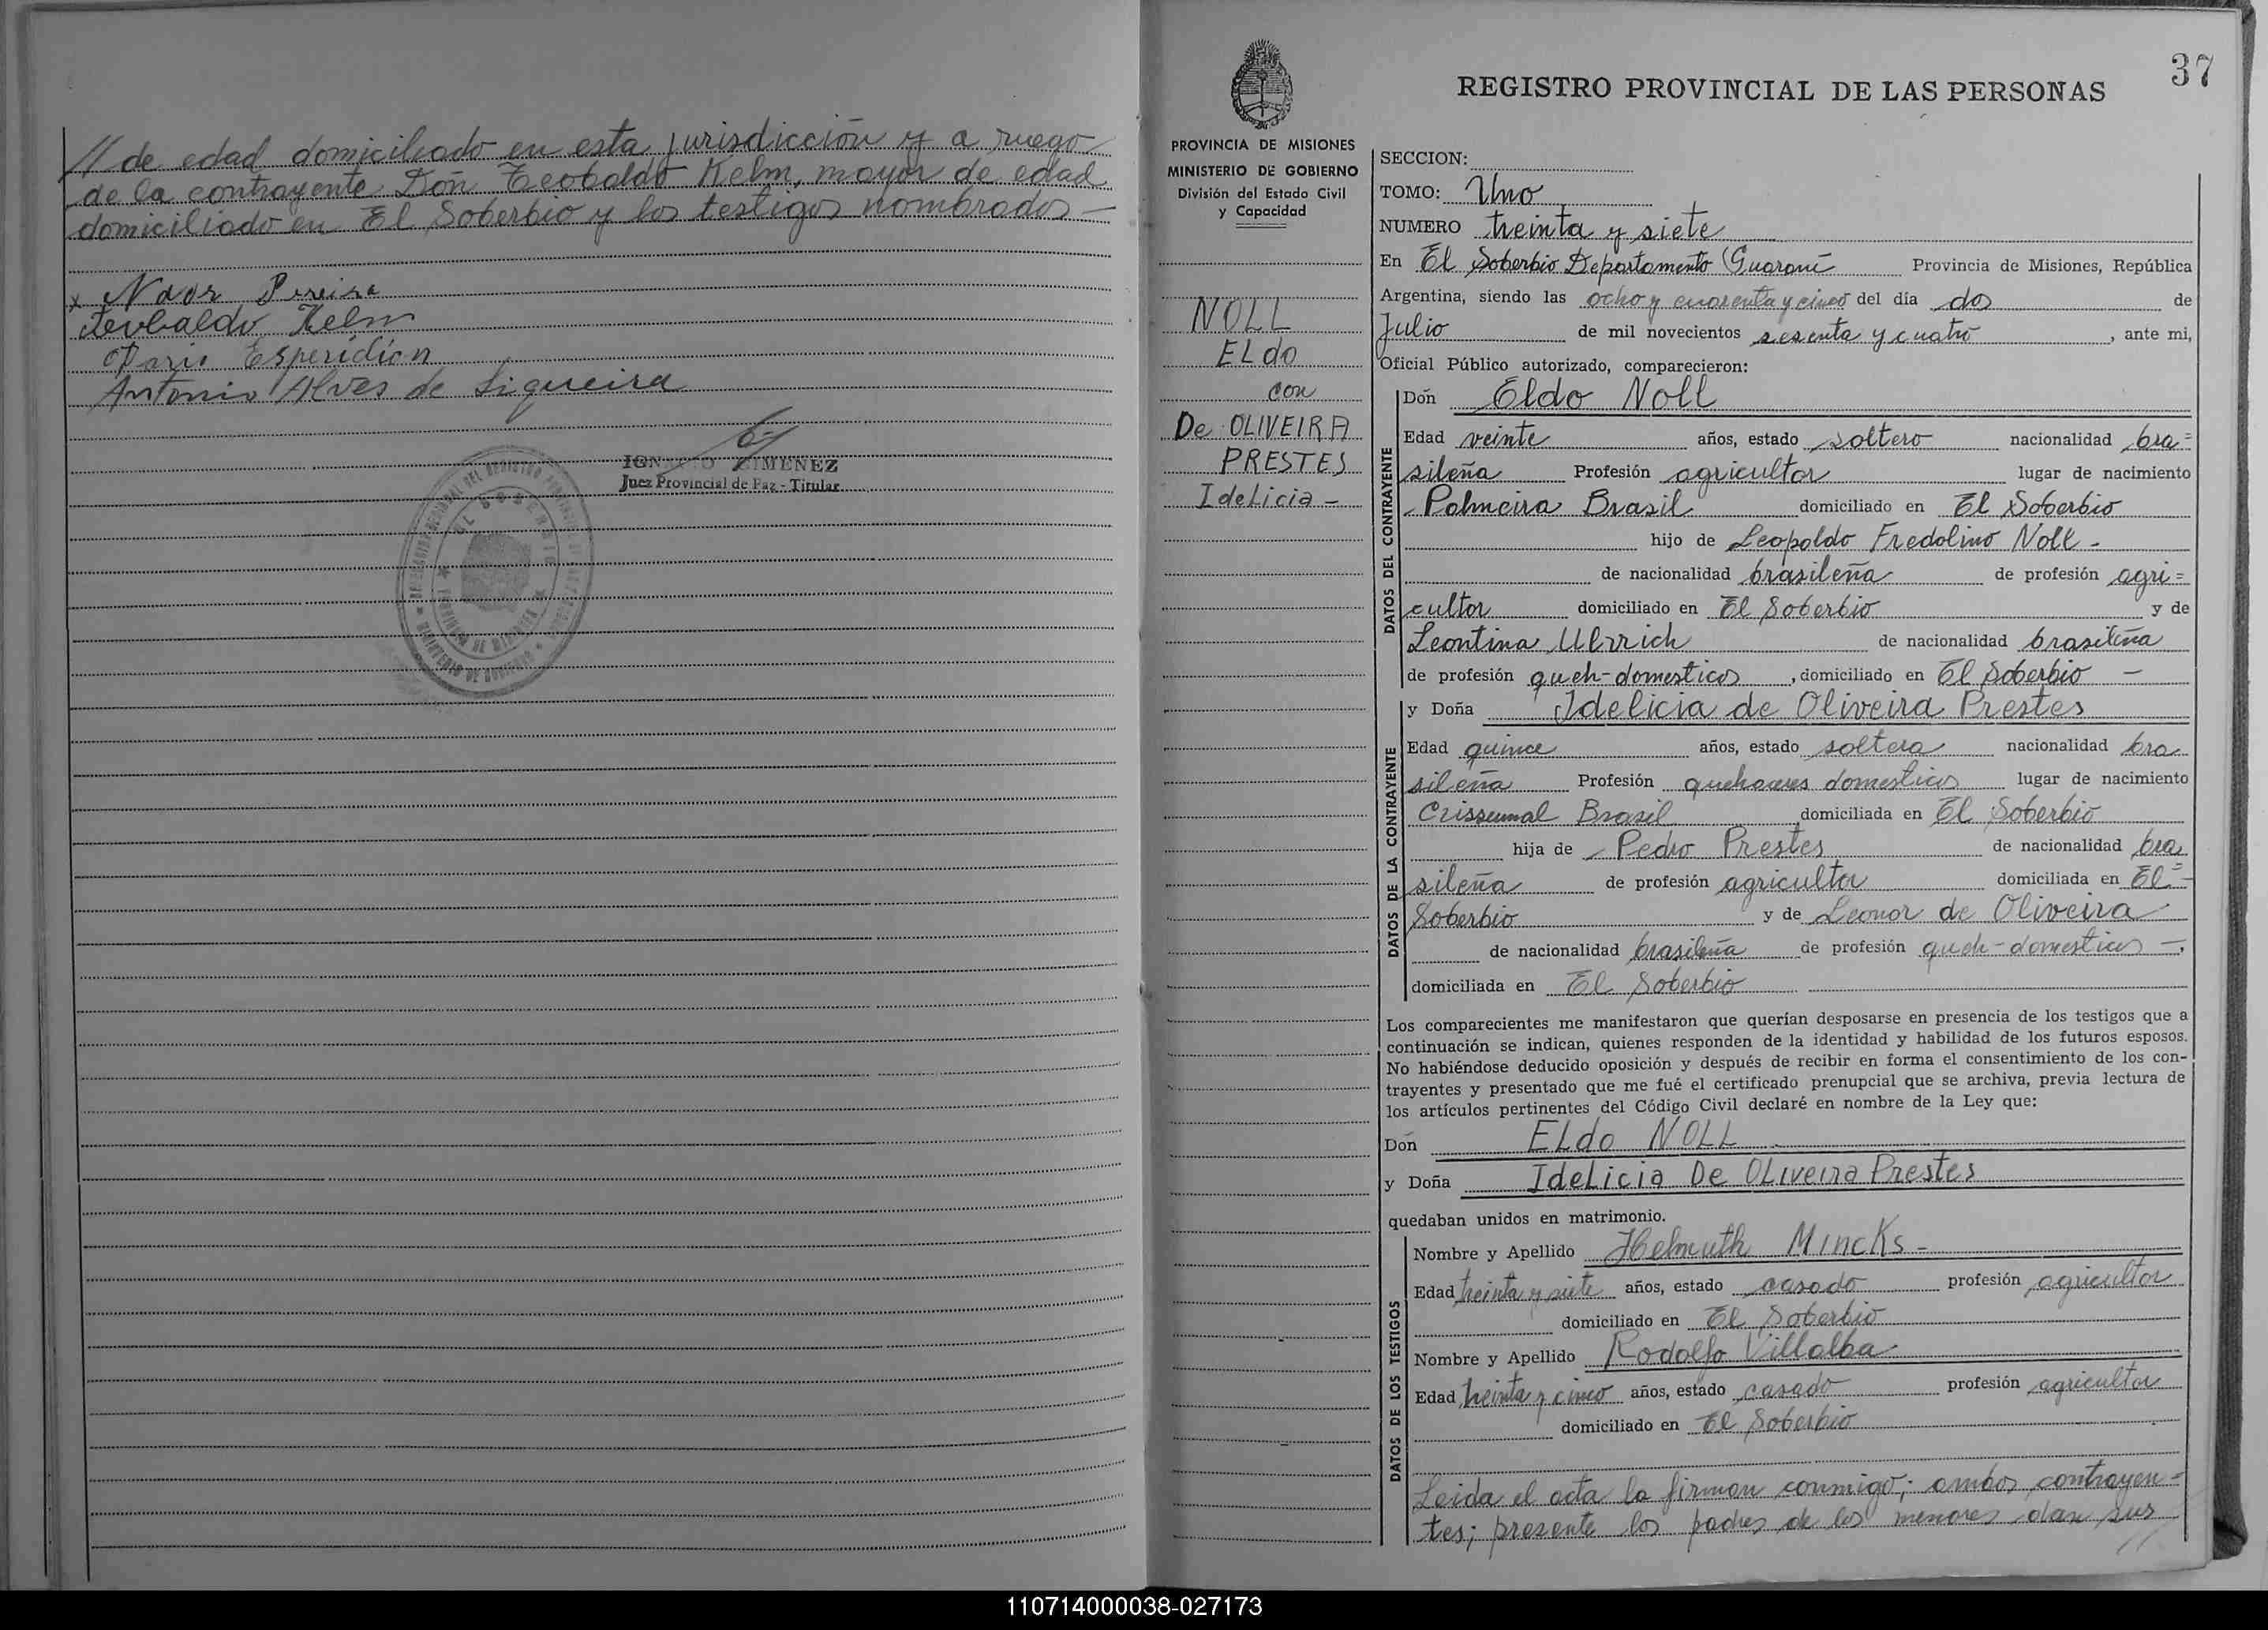 // de edad domiciliado en esta jurisdicción y a ruego
de la contrayente Don Teobaldo Kelm, mayor de edad
domiciliado en El Soberbio y los testigos nombrados -
x Naor Pereira
Teobaldo Kelm
Esperidion
Antonio Alves de Siqueira
IGNACIO XIMENEZ
Juez Provincial de Paz - Titular
EL SOBERBIO
PROVINCIA DE MISIONES
MINISTERIO DE GOBIERNO
37
REGISTRO PROVINCIAL DE LAS PERSONAS
PROVINCIA DE MISIONES
MINISTERIO DE GOBIERNO
División del Estado Civil
y Capacidad
NOLL
ELdo
con
De OLIVEIRA
PRESTES
IdeLicia -
SECCION:
TOMO: Uno
NUMERO treinta y siete
En El Soberbio Departamento Guaraní Provincia de Misiones, República
Argentina, siendo las ocho y cuarenta y cinco del día dos de
Julio de mil novecientos sesenta y cuatro, ante mi,
Oficial Público autorizado, comparecieron:
DATOS DEL CONTRAYENTE
Don Eldo Noll
Edad veinte años, estado soltero nacionalidad bra=
sileña Profesión agricultor lugar de nacimiento
Palmeira Brasil domiciliado en El Soberbio
hijo de Leopoldo Fredolino Noll -
de nacionalidad brasileña de profesión agri=
cultor domiciliado en El Soberbio y de
Leontina Ulrrich de nacionalidad brasileña
de profesión queh-domesticos, domiciliado en El Soberbio -
DATOS DE LA CONTRAYENTE
y Doña Idelicia de Oliveira Prestes
Edad quince años, estado soltera nacionalidad bra
sileña Profesión quehaceres domesticos lugar de nacimiento
Crissiumal Brasil domiciliada en El Soberbio
hija de Pedro Prestes de nacionalidad bra
sileña de profesión agricultor domiciliada en El =
Soberbio y de Leonor de Oliveira
de nacionalidad brasileña de profesión queh-domesticos -,
domiciliada en El Soberbio
Los comparecientes me manifestaron que querían desposarse en presencia de los testigos que a
continuación se indican, quienes responden de la identidad y habilidad de los futuros esposos.
No habiéndose deducido oposición y después de recibir en forma el consentimiento de los con-
trayentes y presentado que me fué el certificado prenupcial que se archiva, previa lectura de
los artículos pertinentes del Código Civil declaré en nombre de la Ley que:
Don ELdo NOLL
y Doña IdeLicia De OLiveira Prestes
quedaban unidos en matrimonio.
DATOS DE LOS TESTIGOS
Nombre y Apellido Helmuth MincKs -
Edad treinta y siete años, estado casado profesión agricultor
domiciliado en El Soberbio
Nombre y Apellido Rodolfo Villalba
Edad treinta y cinco años, estado casado profesión agricultor
domiciliado en El Soberbio
Leida el acta la firman conmigo; ambos contrayen=
tes; presente los padres de los menores dan sus
//
110714000038-027173